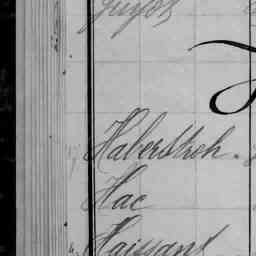 Guyot
Haberstroh
Hac
Haissant